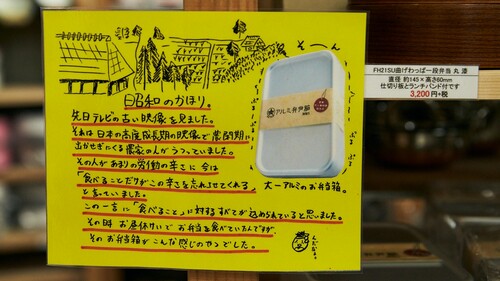 昭和のかほり。
先日テレビの古い映像を見ました。
それは日本の高度成長期の映像で農閑期に
出かせぎにくる農家の人がうつっていました。
その人があまりの労働の辛さに今は
「食べることだけがこの辛さを忘れさせてくれる」
と言っていました。
この一言に「食べること」に対するすべてが込められていると思いました。
その時お昼休けいでお弁当を食べていたんですが、
そのお弁当箱がこんな感じのやつでした。
そ〜ん
アルミ弁当箱
大一アルミのお弁当箱。
んだなぁ。
FH21SU曲げわっぱ一段弁当 丸 漆
直径 約145×高さ60mm
仕切り板とランチバンド付です
3,200円+税